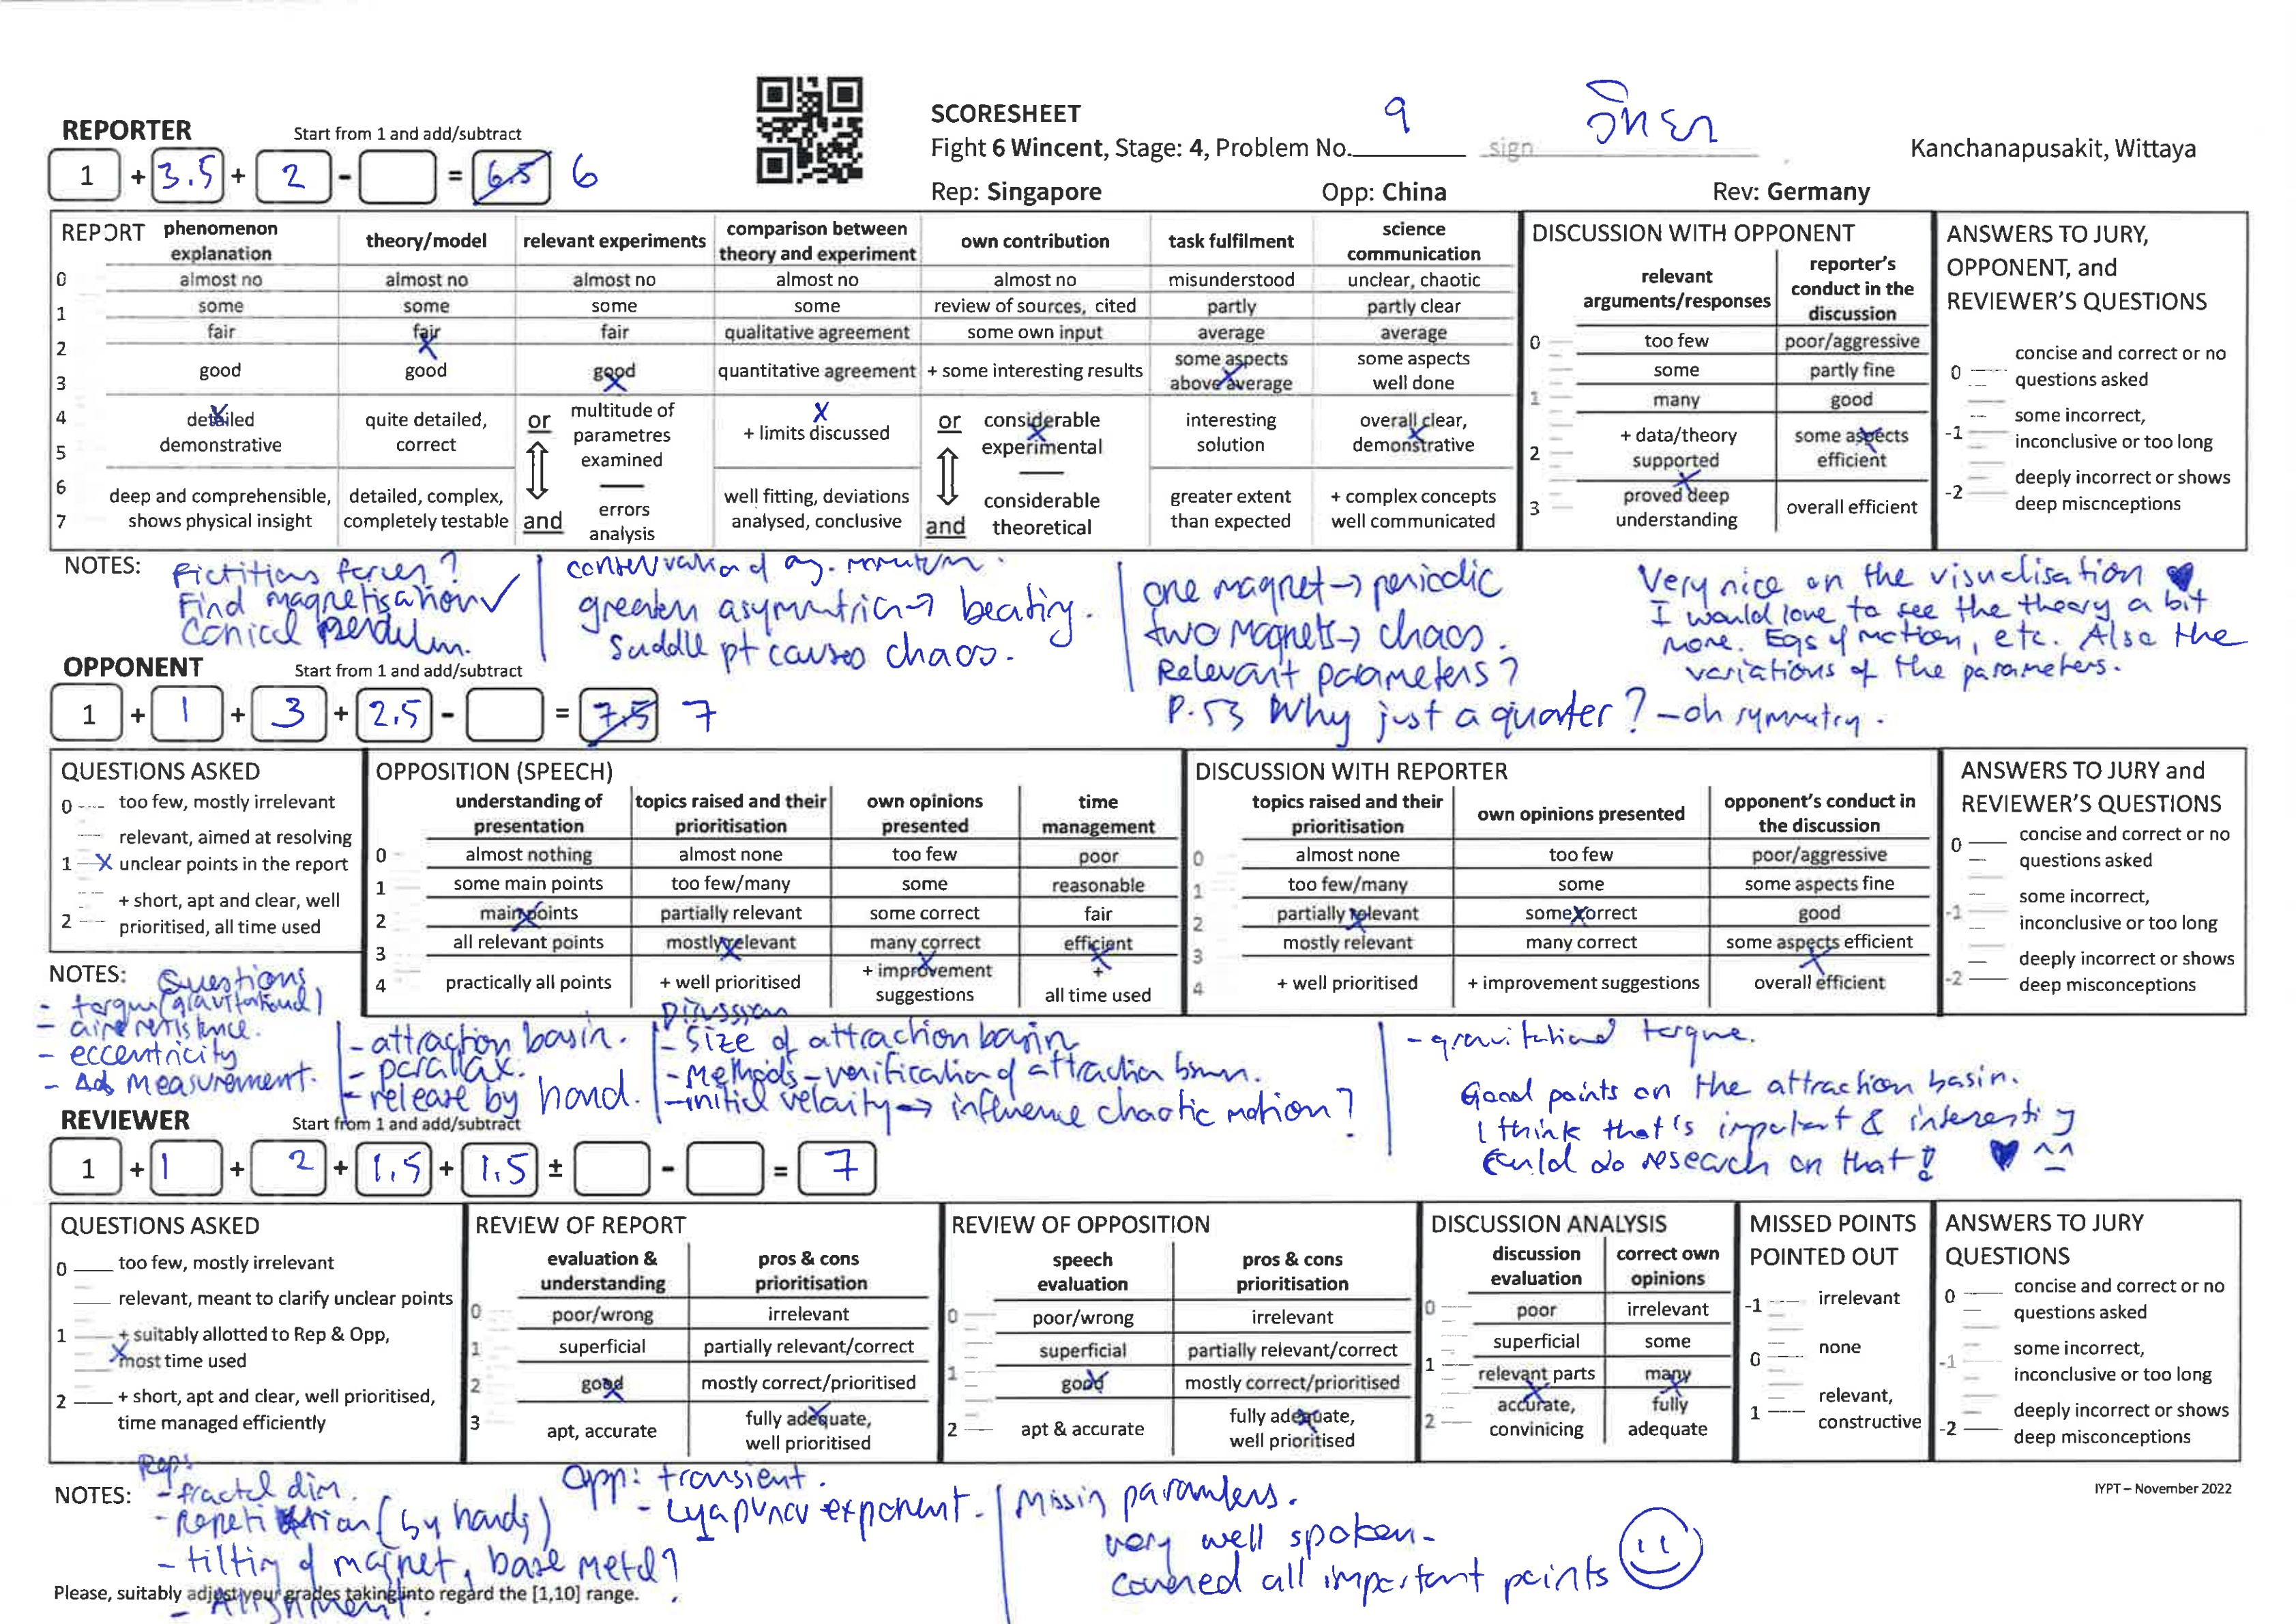 SCORESHEET
Fight 6 Wincent, Stage: 4, Problem No. 9 sign วิทยา Kanchanapusakit, Wittaya
Rep: Singapore Opp: China Rev: Germany
REPORTER Start from 1 and add/subtract
1 + 3.5 + 2 - = 6.5 6
REPORT
phenomenon explanation
almost no
some
fair
good
detailed demonstrative
deep and comprehensible, shows physical insight
theory/model
almost no
some
fair
good
quite detailed, correct
detailed, complex, completely testable
relevant experiments
almost no
some
fair
good
or
multitude of parametres examined
and
errors analysis
comparison between theory and experiment
almost no
some
qualitative agreement
quantitative agreement
+ limits discussed
well fitting, deviations analysed, conclusive
own contribution
almost no
review of sources, cited
some own input
+ some interesting results
or
considerable experimental
and
considerable theoretical
task fulfilment
misunderstood
partly
average
some aspects above average
interesting solution
greater extent than expected
science communication
unclear, chaotic
partly clear
average
some aspects well done
overall clear, demonstrative
+ complex concepts well communicated
0
1
2
3
4
5
6
7
DISCUSSION WITH OPPONENT
relevant arguments/responses
too few
some
many
+ data/theory supported
proved deep understanding
reporter's conduct in the discussion
poor/aggressive
partly fine
good
some aspects efficient
overall efficient
0
1
2
3
ANSWERS TO JURY, OPPONENT, and REVIEWER'S QUESTIONS
0 concise and correct or no questions asked
-1 some incorrect, inconclusive or too long
-2 deeply incorrect or shows deep miscnceptions
NOTES:
Fictitious forces?
Find magnetisation ✓
Conical pendulum.
conservation of ang. momentum.
greater asymmetric → beating.
Saddle pt causes chaos.
one magnet → periodic
two magnets → chaos.
Relevant parameters?
P.53 Why just a quater? - oh symmetry.
Very nice on the visualisation ♥
I would love to see the theory a bit
more. Eqs of motion, etc. Also the
variations of the parameters.
OPPONENT Start from 1 and add/subtract
1 + 1 + 3 + 2.5 - = 7.5 7
QUESTIONS ASKED
0 too few, mostly irrelevant
relevant, aimed at resolving
1 unclear points in the report
+ short, apt and clear, well
2 prioritised, all time used
OPPOSITION (SPEECH)
understanding of presentation
almost nothing
some main points
main points
all relevant points
practically all points
topics raised and their prioritisation
almost none
too few/many
partially relevant
mostly relevant
+ well prioritised
own opinions presented
too few
some
some correct
many correct
+ improvement suggestions
time management
poor
reasonable
fair
efficient
+
all time used
0
1
2
3
4
DISCUSSION WITH REPORTER
topics raised and their prioritisation
almost none
too few/many
partially relevant
mostly relevant
+ well prioritised
own opinions presented
too few
some
some correct
many correct
+ improvement suggestions
opponent's conduct in the discussion
poor/aggressive
some aspects fine
good
some aspects efficient
overall efficient
0
1
2
3
4
ANSWERS TO JURY and REVIEWER'S QUESTIONS
0 concise and correct or no questions asked
-1 some incorrect, inconclusive or too long
-2 deeply incorrect or shows deep misconceptions
NOTES:
Questions
- torque (gravitational)
- air resistence.
- eccentricity
- Measurement.
- attraction basin.
- parallax.
- release by hand.
Discussion
- Size of attraction basin
- Methods - verification of attraction
- initial velocity → influence chaotic motion?
- gravitational torque.
Good points on the attraction basin.
I think that's important & interesting
Could do research on that! ♥ ^^
REVIEWER Start from 1 and add/subtract
1 + 1 + 2 + 1.5 + 1.5 ± - = 7
QUESTIONS ASKED
0 too few, mostly irrelevant
relevant, meant to clarify unclear points
1 + suitably allotted to Rep & Opp,
most time used
2 + short, apt and clear, well prioritised,
time managed efficiently
REVIEW OF REPORT
evaluation & understanding
poor/wrong
superficial
good
apt, accurate
pros & cons prioritisation
irrelevant
partially relevant/correct
mostly correct/prioritised
fully adequate, well prioritised
0
1
2
3
REVIEW OF OPPOSITION
speech evaluation
poor/wrong
superficial
good
apt & accurate
pros & cons prioritisation
irrelevant
partially relevant/correct
mostly correct/prioritised
fully adequate, well prioritised
0
1
2
DISCUSSION ANALYSIS
discussion evaluation
poor
superficial
relevant parts
accurate, convinicing
correct own opinions
irrelevant
some
many
fully adequate
0
1
2
MISSED POINTS POINTED OUT
-1 irrelevant
0 none
1 relevant, constructive
ANSWERS TO JURY QUESTIONS
0 concise and correct or no questions asked
-1 some incorrect, inconclusive or too long
-2 deeply incorrect or shows deep misconceptions
IYPT – November 2022
NOTES:
Rep:
- fractal dim.
- Repetition (by hands)
- tilting of magnet, base metal?
- Alignment.
Opp: transient.
- Lyapunov exponent.
Missing paramters.
very well spoken.
covered all important points
Please, suitably adjust your grades taking into regard the [1,10] range.